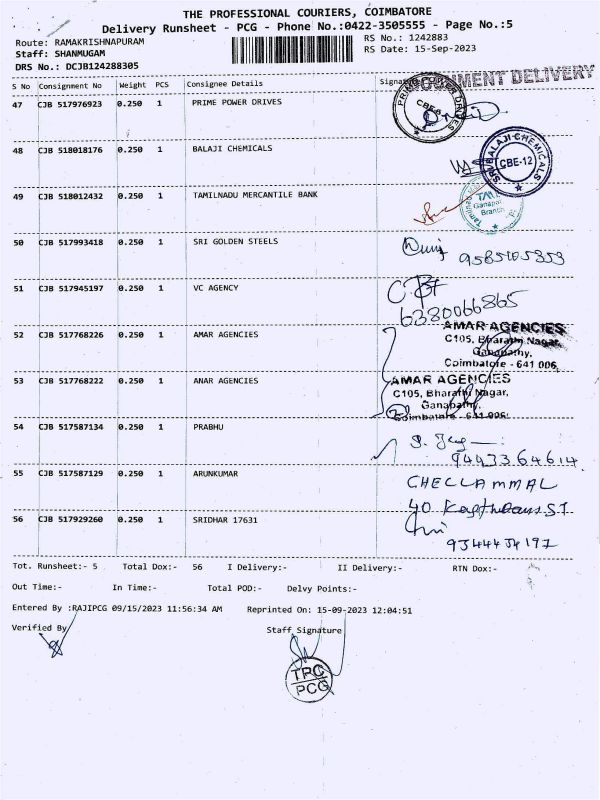 THE PROFESSIONAL COURIERS, COIMBATORE
Delivery Runsheet - PCG - Phone No.:0422-3505555 - Page No.:5
Route: RAMAKRISHNAPURAM
RS No.: 1242883
Staff: SHANMUGAM
RS Date: 15-Sep-2023
DRS No.: DCJB124288305
S No Consignment No Weight PCS Consignee Details Signature
DELIVERY
47 CJB 517976923 0.250 1 PRIME POWER DRIVES
PRIME POWER DRIVES
48 CJB 518018176 0.250 1 BALAJI CHEMICALS
SRI BALAJI CHEMICALS
CBE-12
49 CJB 518012432 0.250 1 TAMILNADU MERCANTILE BANK
Ganapathy
Branch
50 CJB 517993418 0.250 1 SRI GOLDEN STEELS
9585105353
51 CJB 517945197 0.250 1 VC AGENCY
6380066865
52 CJB 517768226 0.250 1 AMAR AGENCIES
AMAR AGENCIES
C105, Bharathi Nagar,
Ganapathy,
Coimbatore - 641 006.
53 CJB 517768222 0.250 1 ANAR AGENCIES
AMAR AGENCIES
C105, Bharathi Nagar,
Ganapathy,
Coimbatore - 641 006.
54 CJB 517587134 0.250 1 PRABHU
9443364614
55 CJB 517587129 0.250 1 ARUNKUMAR
CHELLAMMAL
40
ST
56 CJB 517929260 0.250 1 SRIDHAR 17631
9344434197
Tot. Runsheet:- 5 Total Dox:- 56 I Delivery:- II Delivery:- RTN Dox:-
Out Time:- In Time:- Total POD:- Delvy Points:-
Entered By :RAJIPCG 09/15/2023 11:56:34 AM Reprinted On: 15-09-2023 12:04:51
Verified By
Staff Signature
TPC
PCG